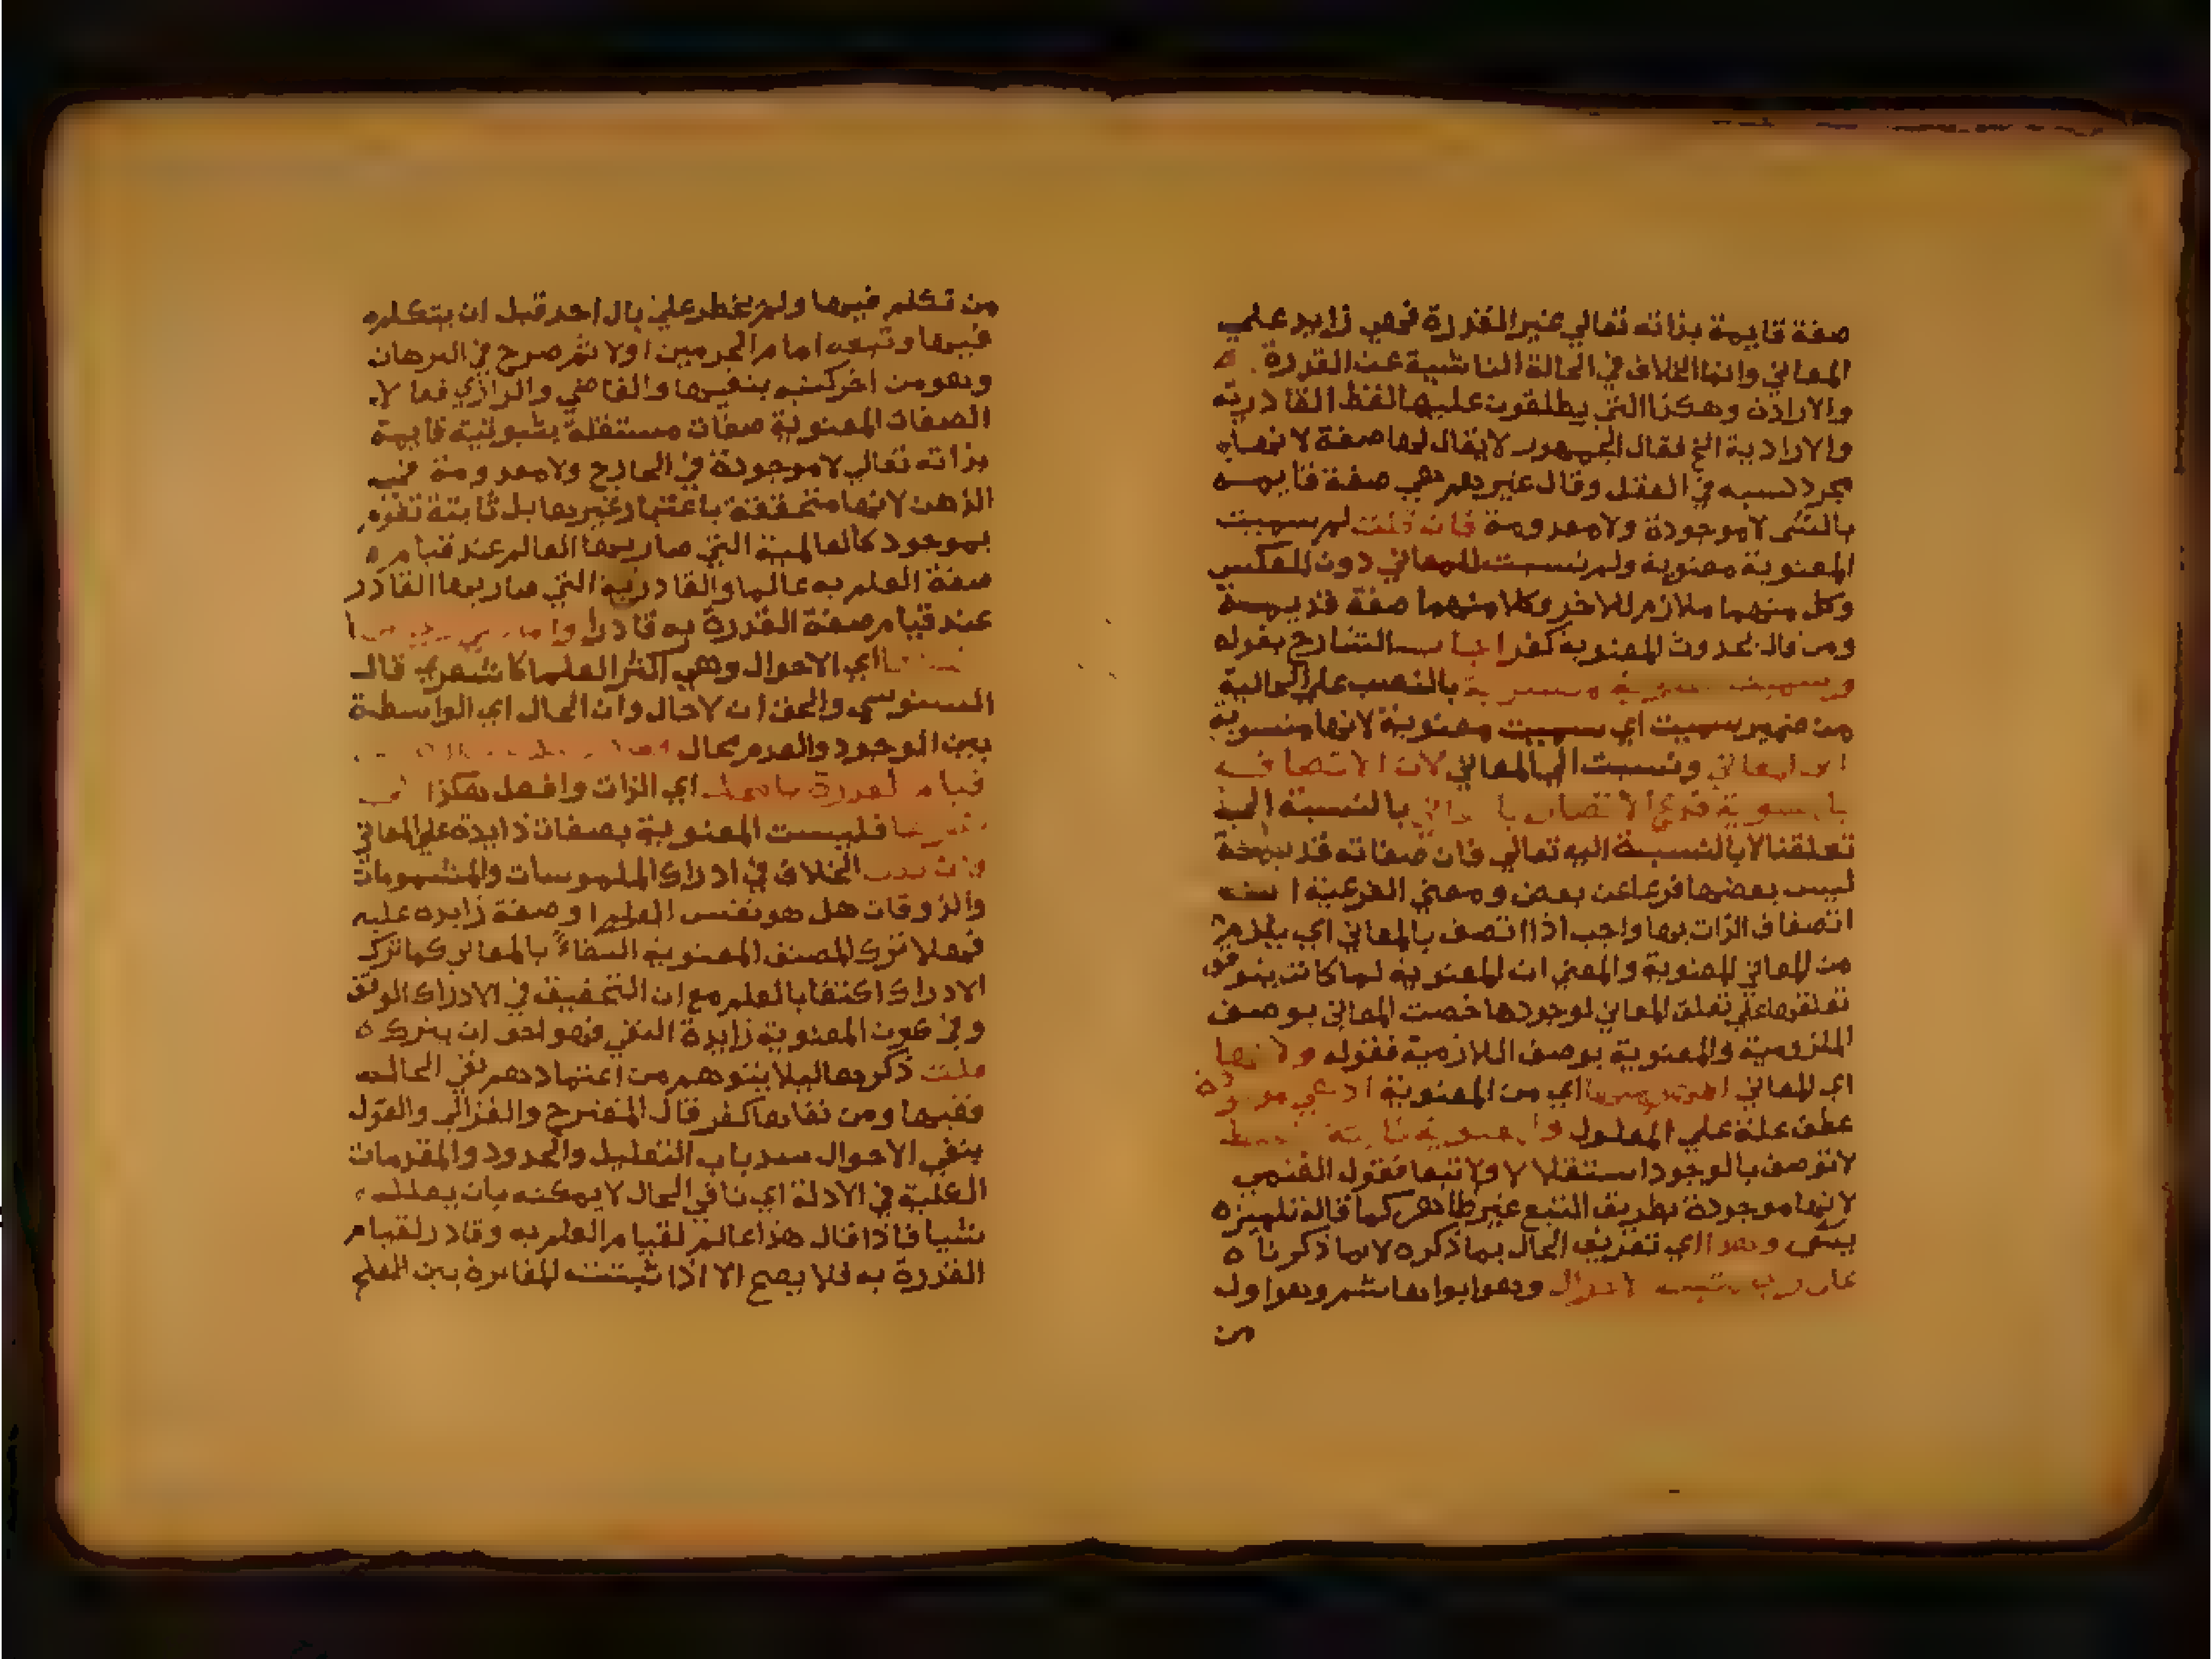 صفة قايمة بذاته تعالي غير القدرة فهي زايد علي
المعاني وانما الخلاف في الحالة الناشية عن القدرة
والارادة وهكذا التي يطلقون عليها لفظ القادرية
والارادية الخ فقال الجمهور لا يقال لها صفة لانها
مجرد نسبه في العقل وقال غيرهم هي صفة قايمه
بالشي لاموجودة ولامعدومة فان قلت لم سميت
المعنوية معنوية ولم نسبت للمعاني دون العكس
وكل منهما ملازم للاخر وكلا منهما صفة قديمة
ومن قال بحدوث المعنوية كفر اجاب الشارح بقوله
وسميت معنوية بالنصب علي الحالية
من ضمير سميت اي سميت معنوية لانها منسوبة
المعاني ونسبت الي المعاني لان الاتصاف
فرع الاتصاف بالنسبة الي
تعلقنا لا بالنسبة اليه تعالي فان صفاته قديمة
ليس بعضها فرعا عن بعض ومعني الفرعية انه
اتصاف الذات بها واجب اذا اتصف بالمعاني اي يلزم
من المعاني المعنوية والمعني ان المعنوية لما كانت يتوقف
تعلقها علي تعلق المعاني لوجودها خصت المعاني بوصف
الملزومية والمعنوية بوصف اللازمية فقوله ولانها
اي المعاني اي من المعنوية اذ هي موجودة
عطف علة علي المعلول والمعنوية ثابتة فقط
لاتوصف بالوجود استقلالا ولا تبعا فقول الغنمي
لانها موجودة بطريق التبع غير ظاهر كما قاله تلميذه
يسي وهذا اي تعريف الحال بما ذكره لا بما ذكرنا ه
الاحوال وهو ابو هاشم وهو اول
من
من تكلم فيها ولم يخطر علي بال احد قبل ان يتكلم
فيها وتبعه امام الحرمين اولا ثم صرح في البرهان
وهو من اخر كتبه بنفيها والقاضي والرازي فعلا
الصفات المعنوية صفات مستقلة بثبوتية قايمة
بذاته تعالي لاموجودة في الخارج ولامعدومة في
الذهن لانها متحققة باعتبار غيرها بل ثابتة تقوم
بموجود كالعالمية التي صار بها العالم عند قيام
صفة العلم به عالما والقادرية التي صار بها القادر
عند قيام صفة القدرة به قادرا واما
اي الاحوال وهي اكثر العلما كاشعري قال
السنوسي والحق ان لاحال وان الحال اي الواسطة
بين الوجود والعدم محال
قيام القدرة بالمحل اي الذات وافعل هكذا في
غيرها فليست المعنوية بصفات زايدة علي المعاني
فان قلت الخلاف في ادراك الملموسات والمشمومات
والذوقات هل هو نفس العلم او صفة زايده عليه
فهلا ترك المصنف المعنوية اكتفاءً بالمعاني كما ترك
الادراك اكتفا بالعلم مع ان التحقيق في الادراك الوقف
وفي كون المعنوية زايدة النفي فهو احق ان يترك ه
قلت ذكرها ليلا يتوهم من اعتمادهم نفي الحال
نفيها ومن نفاها كفر قال المقترح والغزالي والقول
بنفي الاحوال سد باب التعليل والحدود والمقدمات
الكلية في الادلة اي نافي الحال لا يمكنه بان يعلل
شيا فاذا قال هذا عالم لقيام العلم به وقادر لقيام
القدرة به فلا يصح الا اذا ثبتت المغايرة بين العلم